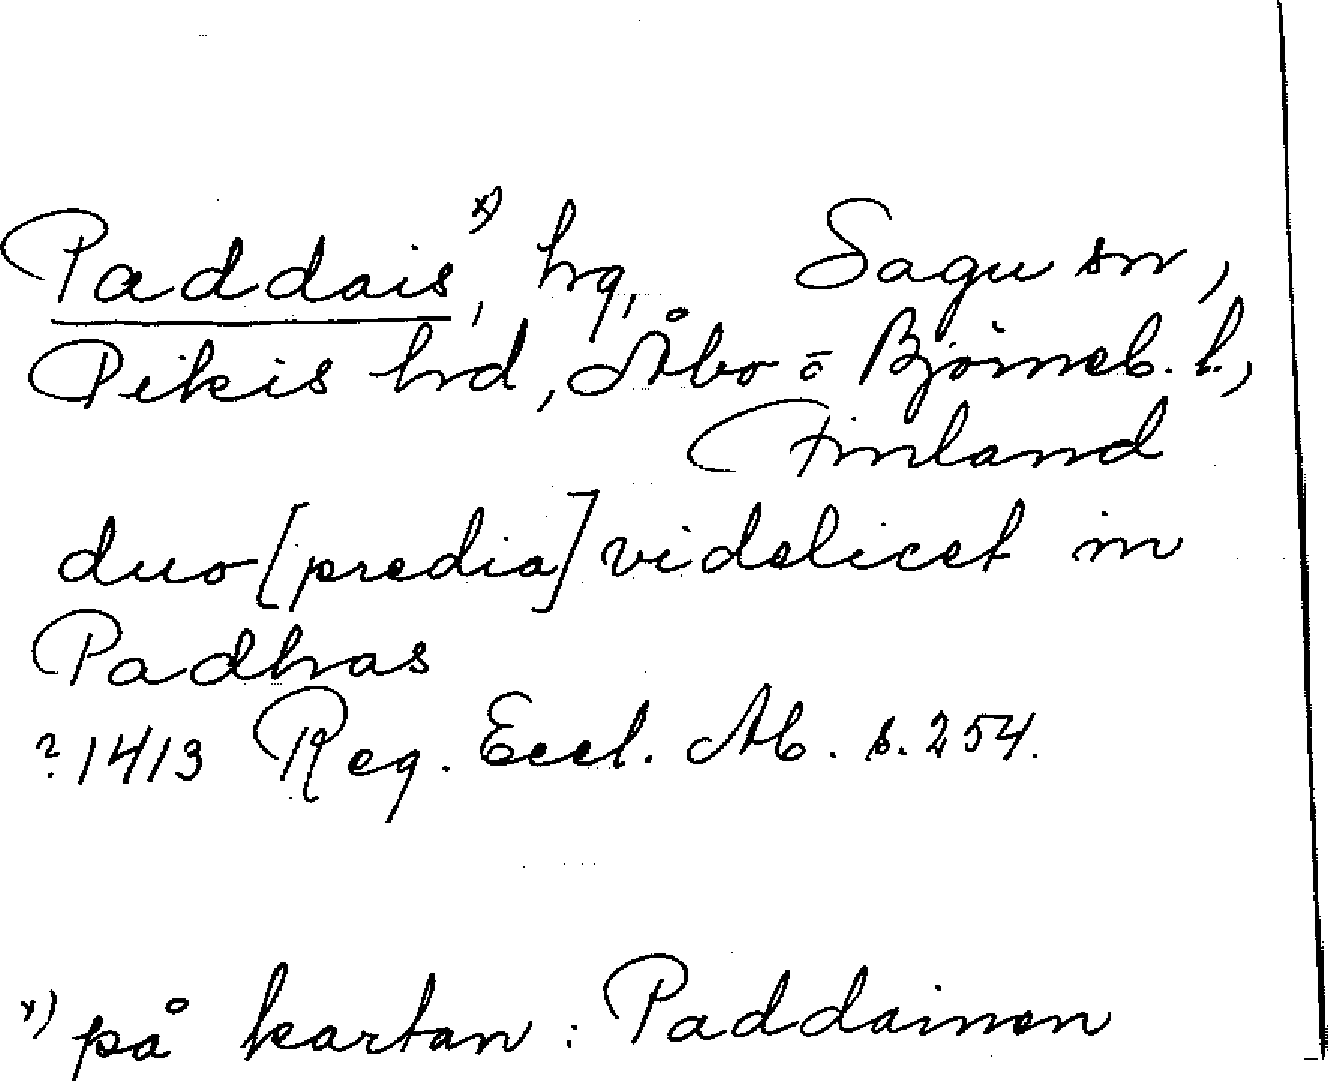 Paddais, x) hg, Sagu sn,
Pikis hd, Åbo = Björneb. l.,
Finland
duo [predia] videlicet in
Padhas
? 1413 Reg. Eccl. Ab. s. 254.
x) på kartan: Paddainen